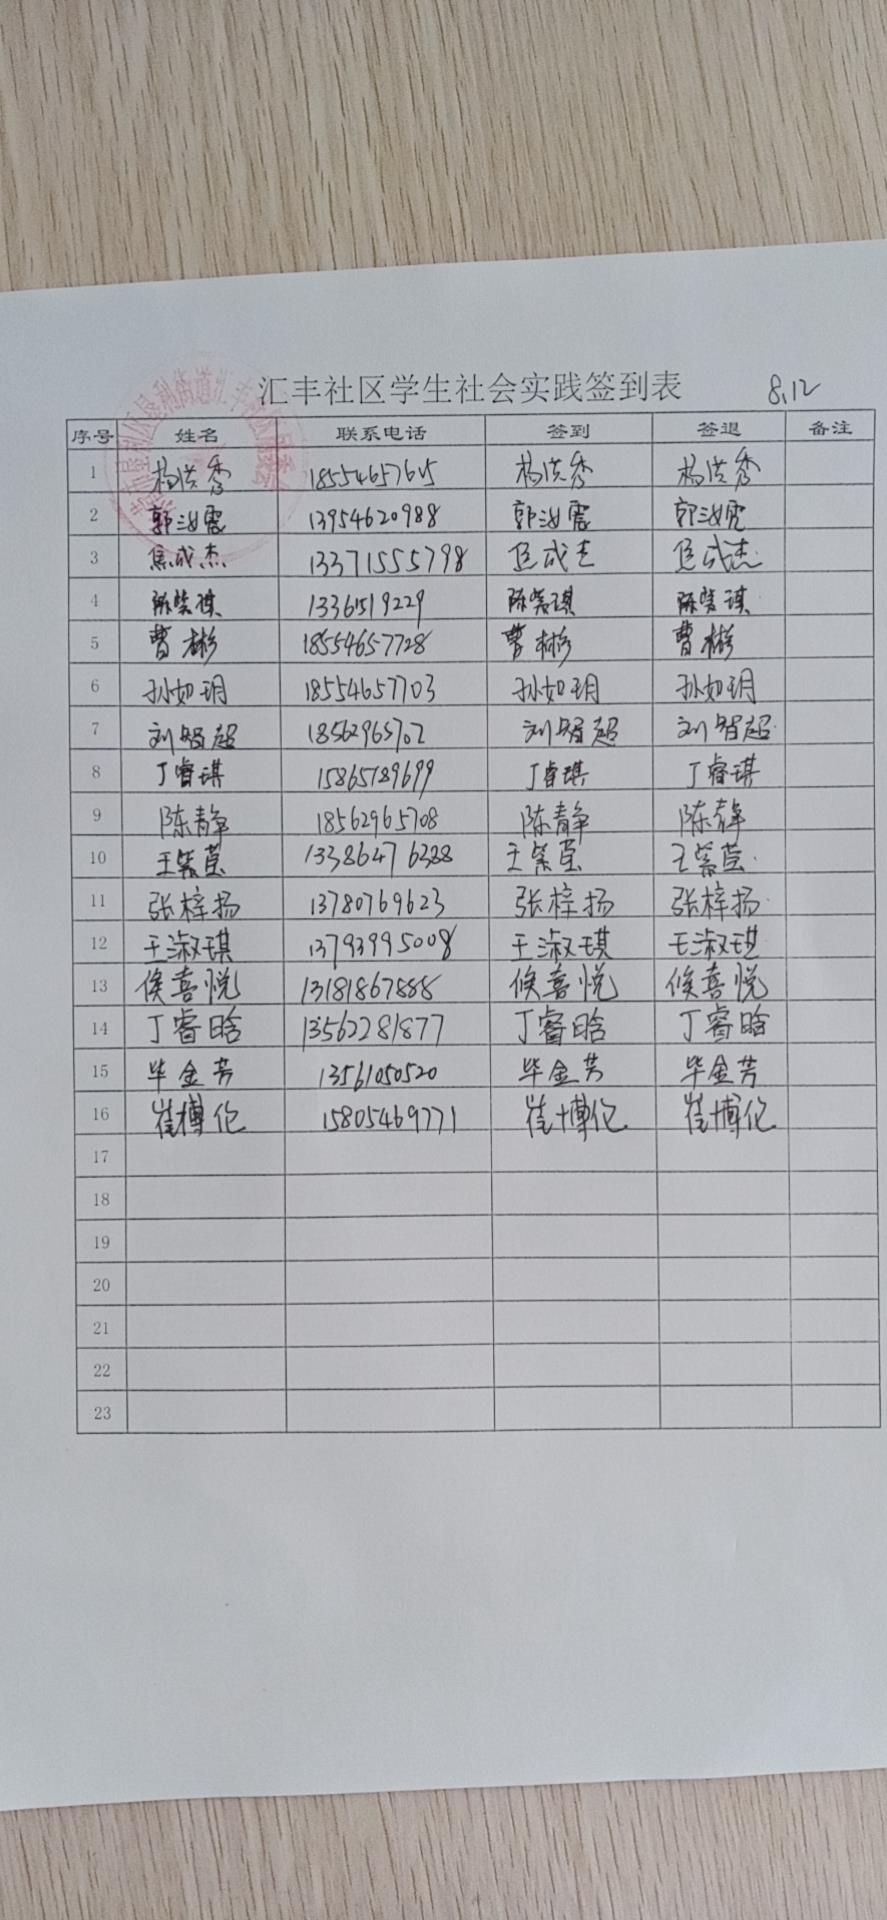 汇丰社区学生社会实践签到表 8.12
序号 姓名 联系电话 签到 签退 备注
1 杨洪秀 18554657615 杨洪秀 杨洪秀
2 郭汝霞 13954620988 郭汝霞 郭汝霞
3 焦成杰 13371555798 焦成杰 焦成杰
4 陈紫琪 13361519229 陈紫琪 陈紫琪
5 曹彬 18554657728 曹彬 曹彬
6 孙如玥 18554657703 孙如玥 孙如玥
7 刘智超 18562965702 刘智超 刘智超
8 丁睿琪 15865189699 丁睿琪 丁睿琪
9 陈静 18562965708 陈静 陈静
10 王紫莹 13386476388 王紫莹 王紫莹
11 张梓扬 13780769623 张梓扬 张梓扬
12 王淑琪 13793995008 王淑琪 王淑琪
13 侯喜悦 13181867888 侯喜悦 侯喜悦
14 丁睿晗 13562281877 丁睿晗 丁睿晗
15 毕金芳 13561050520 毕金芳 毕金芳
16 崔博伦 15805469771 崔博伦 崔博伦
17
18
19
20
21
22
23